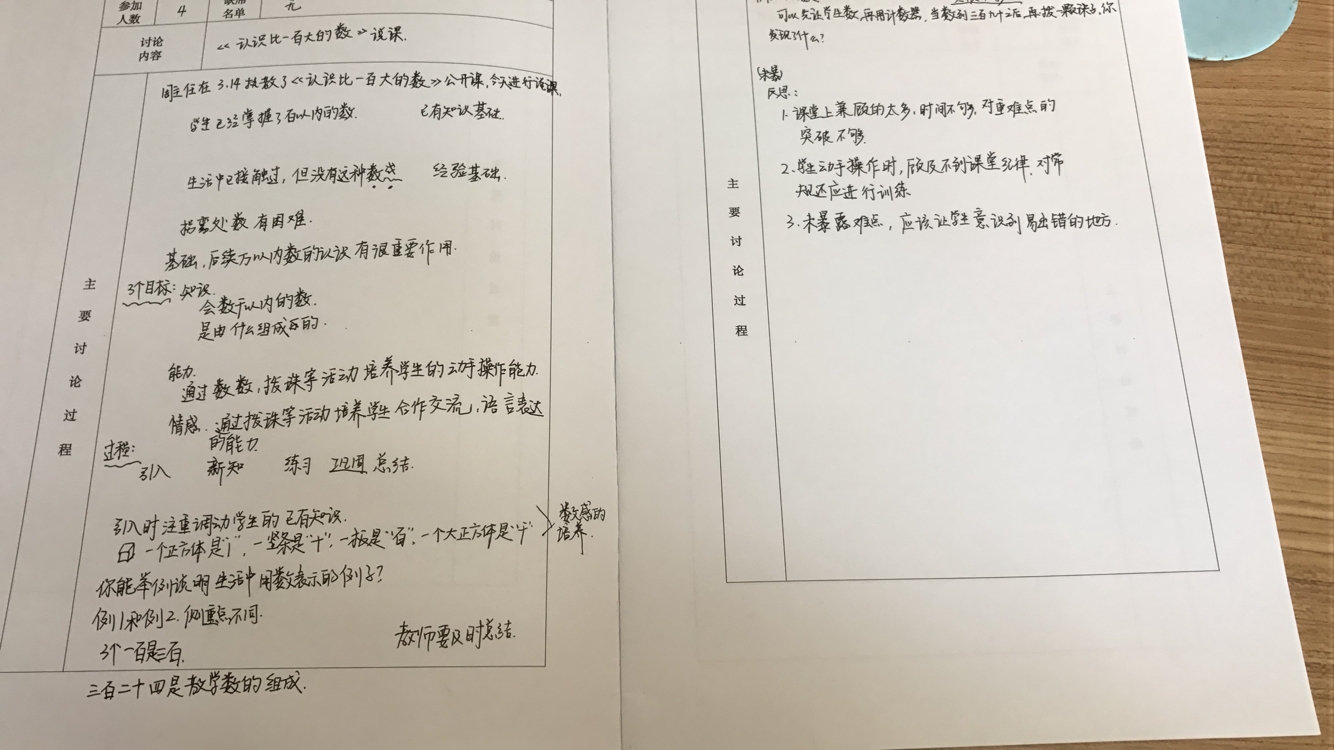 参加
人数
4
缺席
名单
无
讨论
内容
《认识比一百大的数》说课.
主任在3.14执教了《认识比一百大的数》公开课,今天进行说课.
学生已经掌握了百以内的数. 已有知识基础.
生活中已接触过,但没有这种数感 经验基础.
拐弯处数有困难.
基础,后续万以内数的认识有很重要作用.
3个目标: 知识.
会数千以内的数.
是由什么组成的.
能力.
通过数数,拨珠等活动培养学生的动手操作能力.
情感. 通过拨珠等活动培养学生合作交流,语言表达
的能力.
过程:
引入 新知 练习 巩固 总结.
引入时注重调动学生的已有知识.
一个正方体是"1",一竖条是"十",一板是"百",一个大正方体是"千"
数感的
培养.
你能举例说明生活中用数表示的例子?
例1和例2.侧重点不同.
教师要及时总结.
3个一百是三百.
三百二十四是教学数的组成.
主要讨论过程
可以先让学生数,再用计数器,当数到三百九十之后,再拨一颗珠子,你
发现了什么?
反思:
1.课堂上兼顾的太多,时间不够,对重难点的
突破不够.
2.学生动手操作时,顾及不到课堂纪律.对常
规还应进行训练
3.未暴露难点,应该让学生意识到易出错的地方.
主要讨论过程